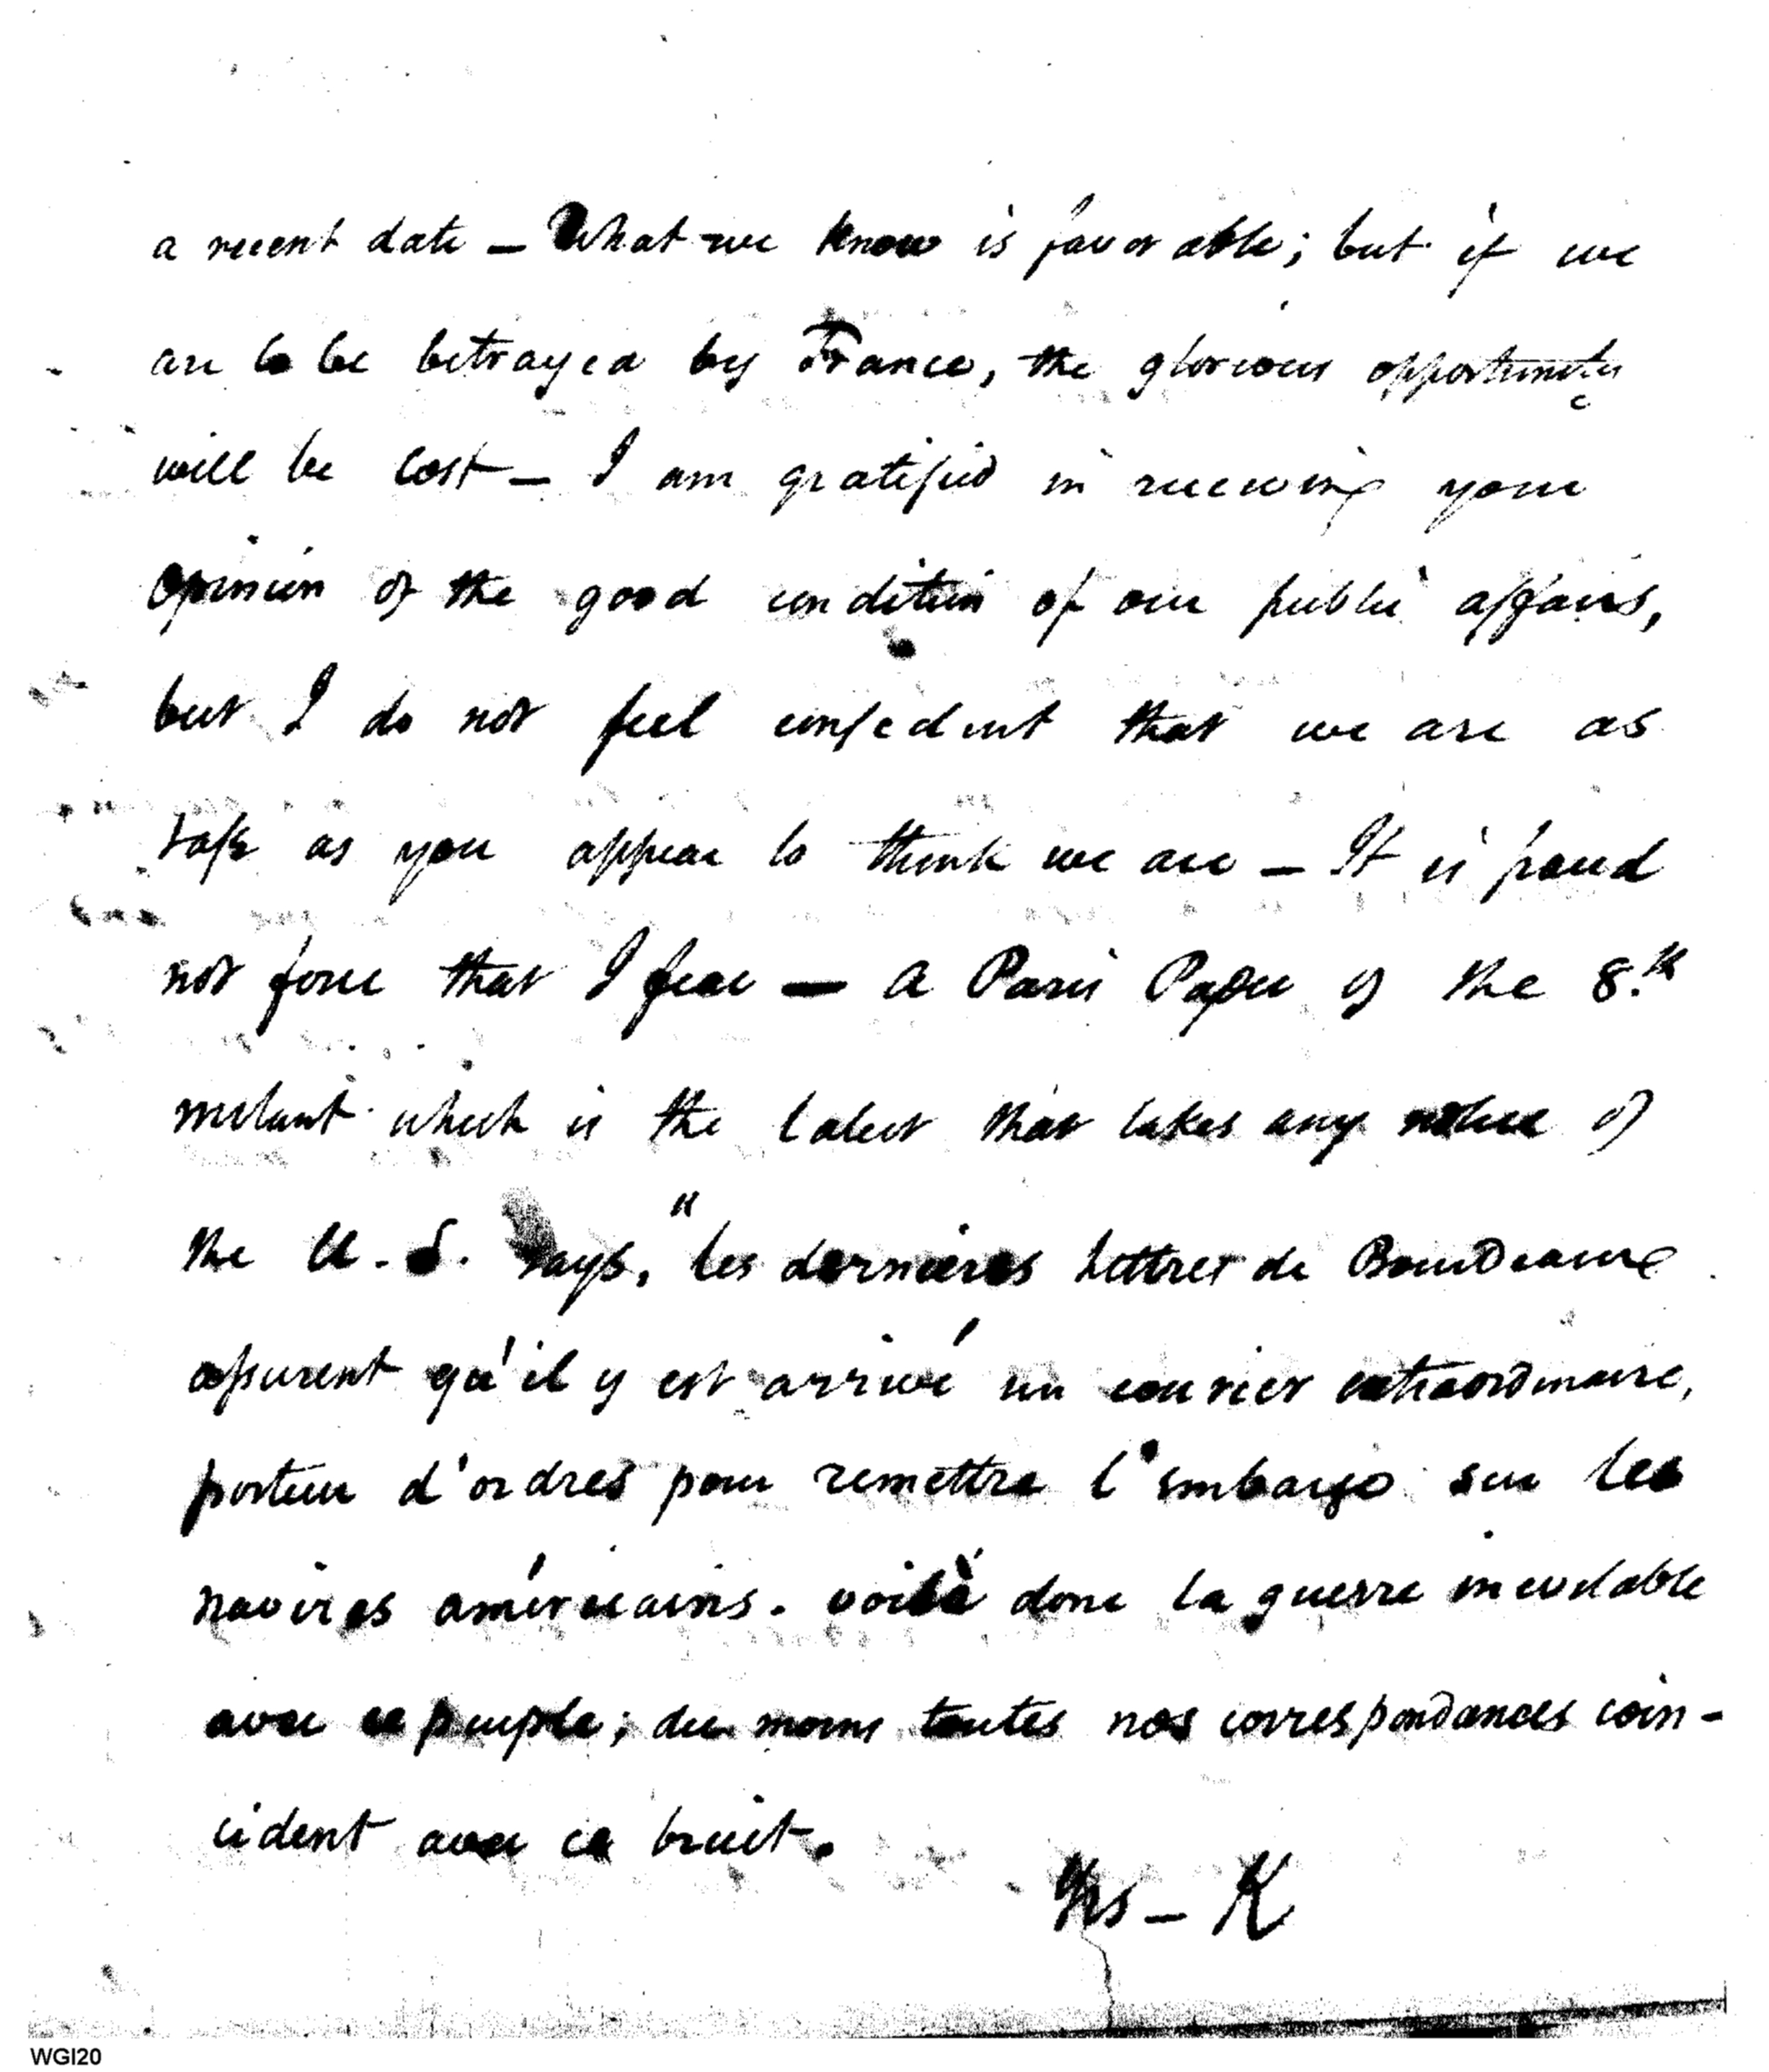 a recent date — What we know is favorable; but if we
are to be betrayed by France, the glorious opportunity
will be lost — I am gratified in receiving your
opinion of the good condition of our public affairs,
but I do not feel confident that we are as
safe as you appear to think we are — It is fraud
not force that I fear — a Paris Paper of the 8.th
instant which is the latest that takes any notice of
the U.S. says, "les dernières lettres de Bourdeaux
assurent qu'il y est arrivé un courier extraordinaire,
porteur d'ordres pour remettre l'embargo sur les
navires américains. voilà donc la guerre inevitable
avec ce peuple; du moins toutes nos correspondances coin-
cident avec ce bruit.
Yrs — K
WGI20